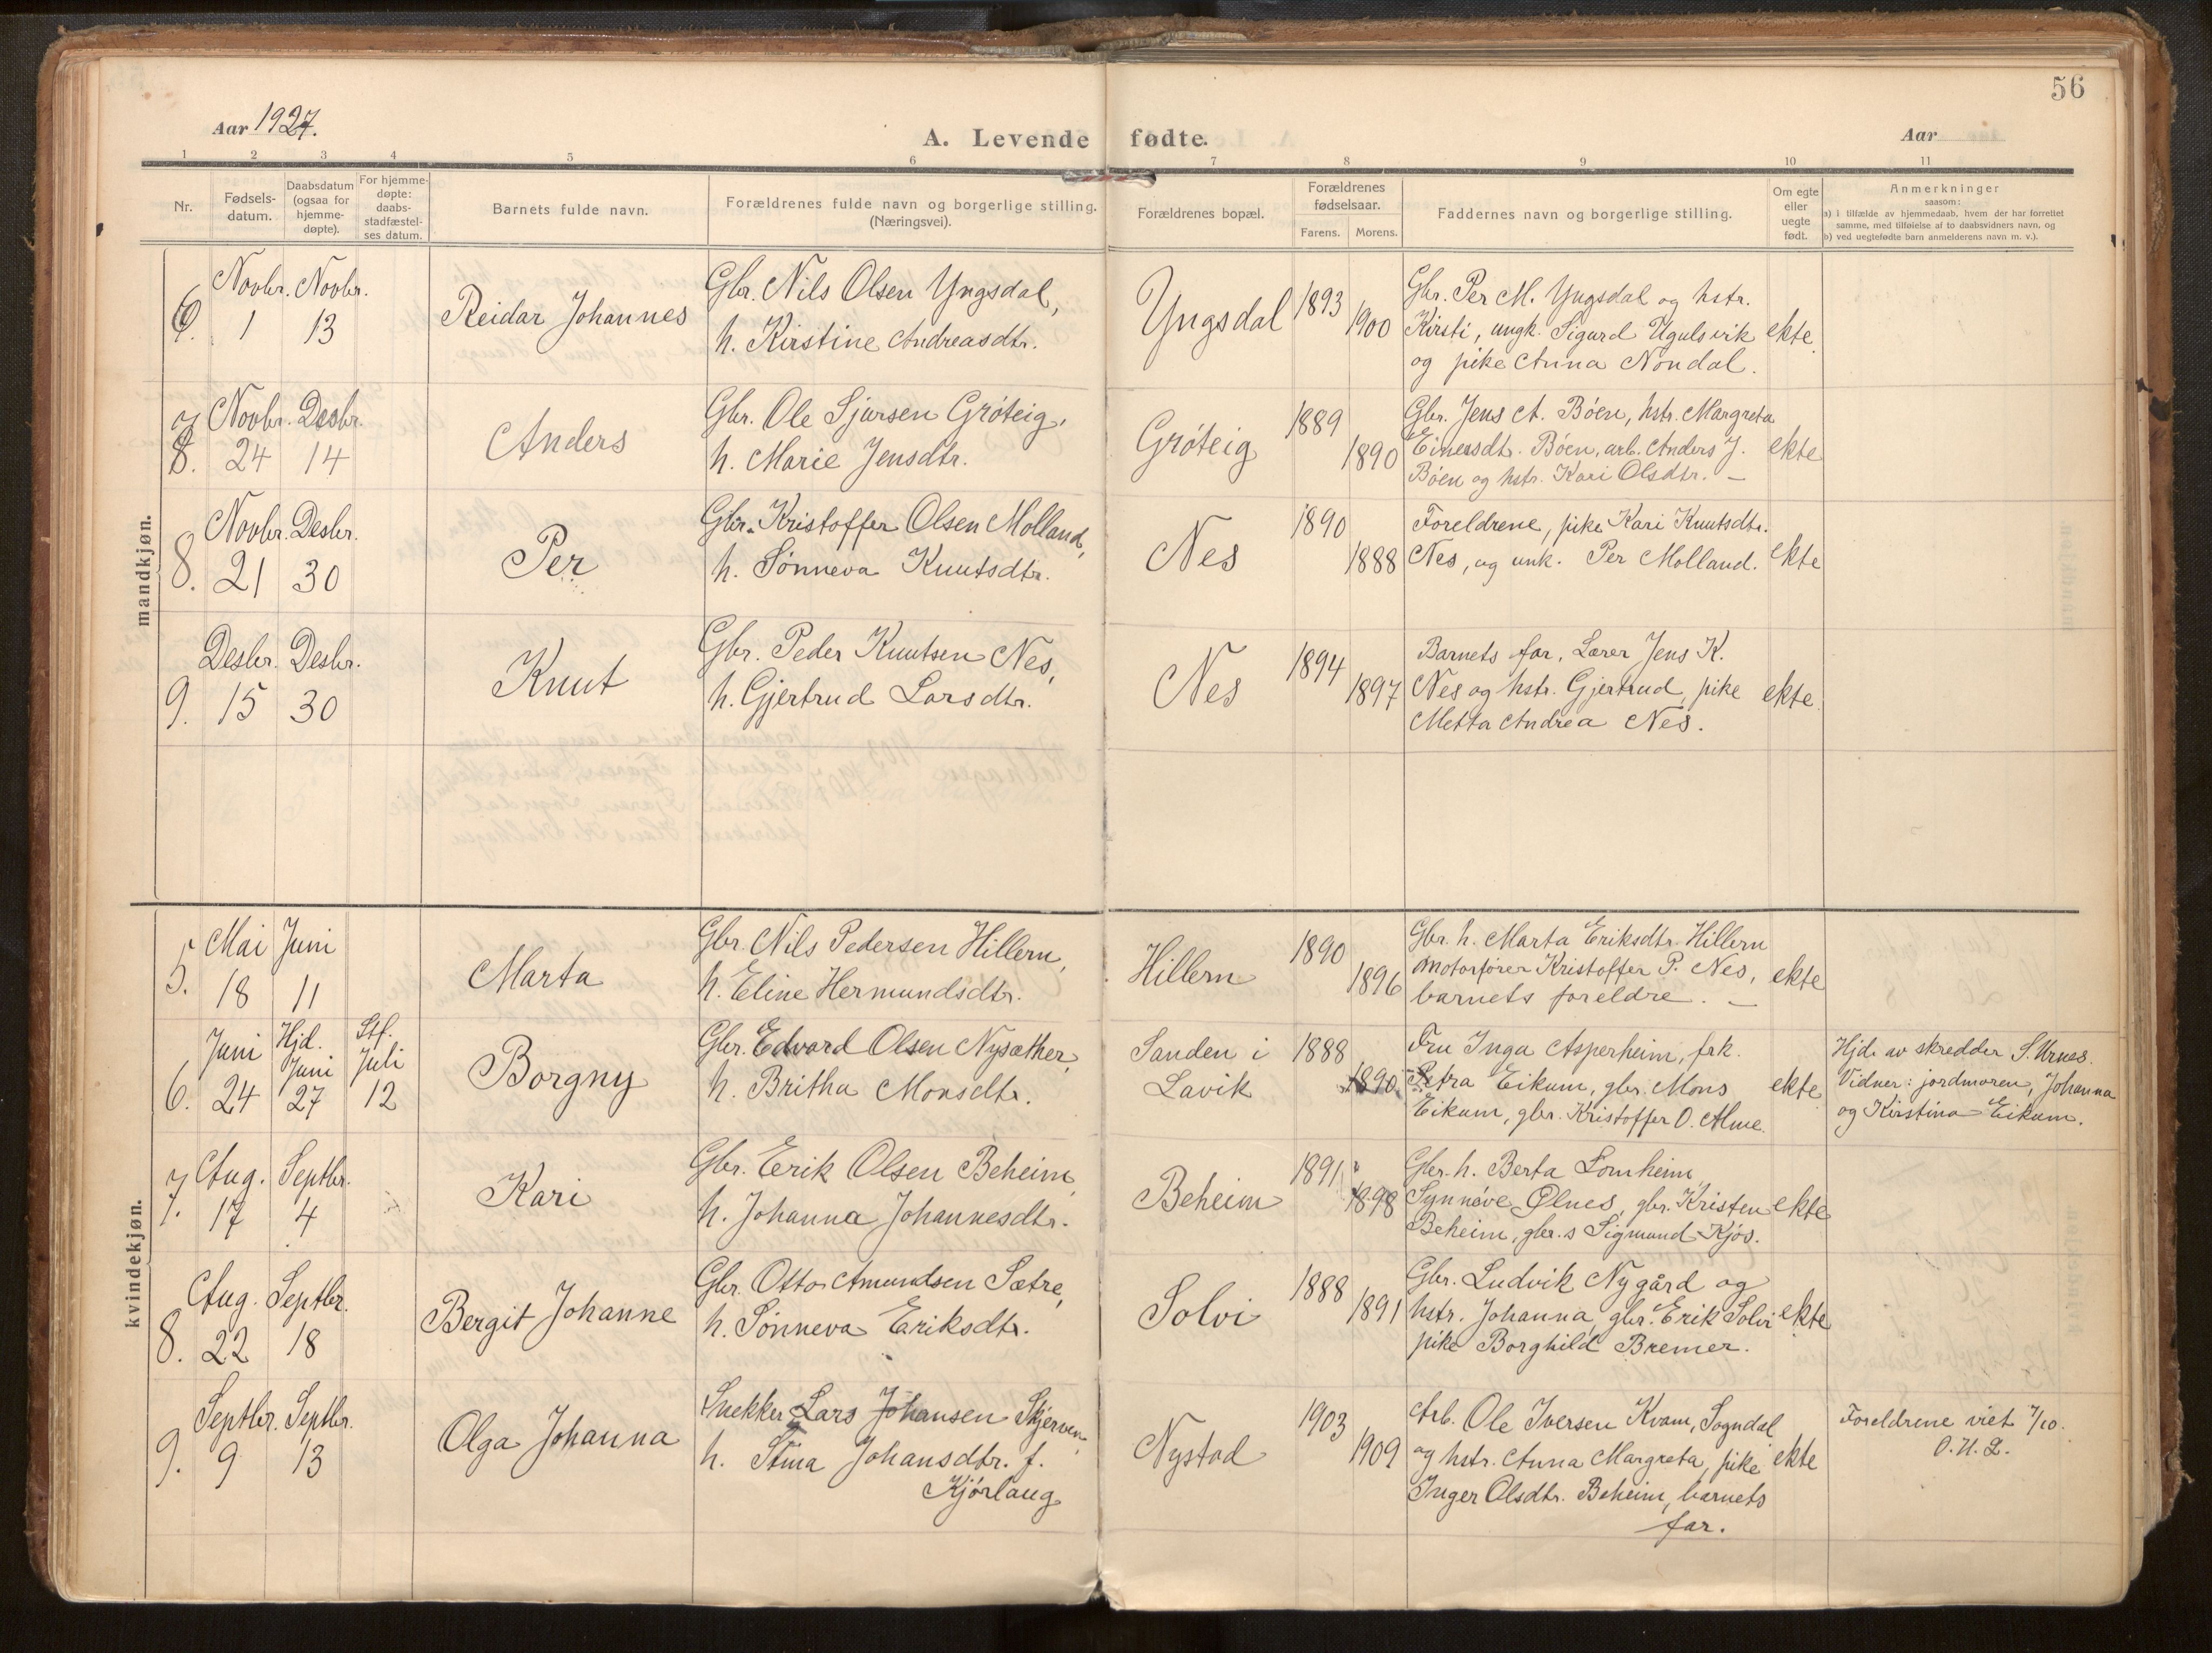 56
Aar 1927.
A. Levende fødte.
Aar
1 2 3 4 5 6 7 8 9 10 11
Nr.
Fødsels-
datum.
Daabsdatum
(ogsaa for
hjemme-
døpte).
For hjemme-
døpte:
daabs-
stadfæstel-
ses datum.
Barnets fulde navn.
Forældrenes fulde navn og borgerlige stilling.
(Næringsvei).
Forældrenes bopæl.
Forældrenes
fødselsaar.
Farens. Morens.
Faddernes navn og borgerlige stilling.
Om egte
eller
uegte
født.
Anmerkninger
saasom:
a) i tilfælde av hjemmedaab, hvem der har forrettet
samme, med tilføielse av to daabsvidners navn, og
b) ved uegtefødte barn anmelderens navn m. v.).
mandkjøn.
6. Novbr. 1 Novbr. 13
Reidar Johannes
Gbr. Nils Olsen Yngsdal,
h. Kirstine Andreasdtr.
Yngsdal
1893
1900
Gbr. Per M. Yngsdal og hstr.
Kirsti, ungk. Sigurd Ugulsvik
og pike Anna Nondal.
ekte
7
8. Novbr. 24 Desbr. 14
Anders
Gbr. Ole Sjursen Gróteig,
h. Marie Jensdtr.
Gróteig
1889
1890
Gbr. Jens A. Bóen, hstr. Margreta
Einersdtr. Bóen, arb. Anders J.
Bóen og hstr. Kari Olsdtr. —
ekte
8. Novbr. 21 Desbr. 30
Per
Gbr. Kristoffer Olsen Molland,
h. Sónneva Knutsdtr.
Nes
1890
1888
Foreldrene, pike Kari Knutsdtr.
Nes, og unk. Per Molland.
ekte
9. Desbr. 15 Desbr. 30
Knut
Gbr. Peder Knutsen Nes,
h. Gjertrud Larsdtr.
Nes
1894
1897
Barnets far, Lærer Jens K.
Nes og hstr. Gjertrud, pike
Metta Andrea Nes.
ekte
kvindekjøn.
5. Mai 18 Juni 11
Marta
Gbr. Nils Pedersen Hillern,
h. Eline Hermundsdtr.
Hillern
1890
1896
Gbr. h. Marta Eriksdtr. Hillern
motorfører Kristoffer P. Nes,
barnets foreldre. —
ekte
6. Juni 24 Hjd. Juni 27 Stf. Juli 12
Borgny
Gbr. Edvard Olsen Nysæther,
h. Britha Monsdtr.
Sanden i
Lavik
1888
1890
Fru Inga Asperheim, frk.
Petra Eikum, gbr. Mons
Eikum, gbr. Kristoffer O. Alme.
ekte
Hjd. av skredder S. Urnes.
Vidner: jordmoren, Johanna
og Kirstina Eikum.
7. Aug. 17 Septbr. 4
Kari
Gbr. Eerik Olsen Beheim,
h. Johanna Johannesdtr.
Beheim
1891
1898
Gbr. h. Berta Lomheim,
Synnóve Ølnes, gbr. Kristen
Beheim, gbr.s Sigmund Kjós.
ekte
8. Aug. 22 Septbr. 18
Bergit Johanne
Gbr. Otto Amundsen Sætre,
h. Sónneva Eriksdtr.
Solvi
1888
1891
Gbr. Ludvik Nygård og
hstr. Johanna, gbr. Erik Solvi
pike Borghild Bremer.
ekte
9. Septbr. 9 Septbr. 13
Olga Johanna
Snekker Lars Johansen Skjerven,
h. Stina Johansdtr. f.
Kjórlaug
Nystad
1903
1909
Arb. Ole Iversen Kvam, Sogndal
og hstr. Anna Margreta, pike
Inger Olsdtr. Beheim, barnets
far.
ekte
Foreldrene viet 7/10.
O. U. L.